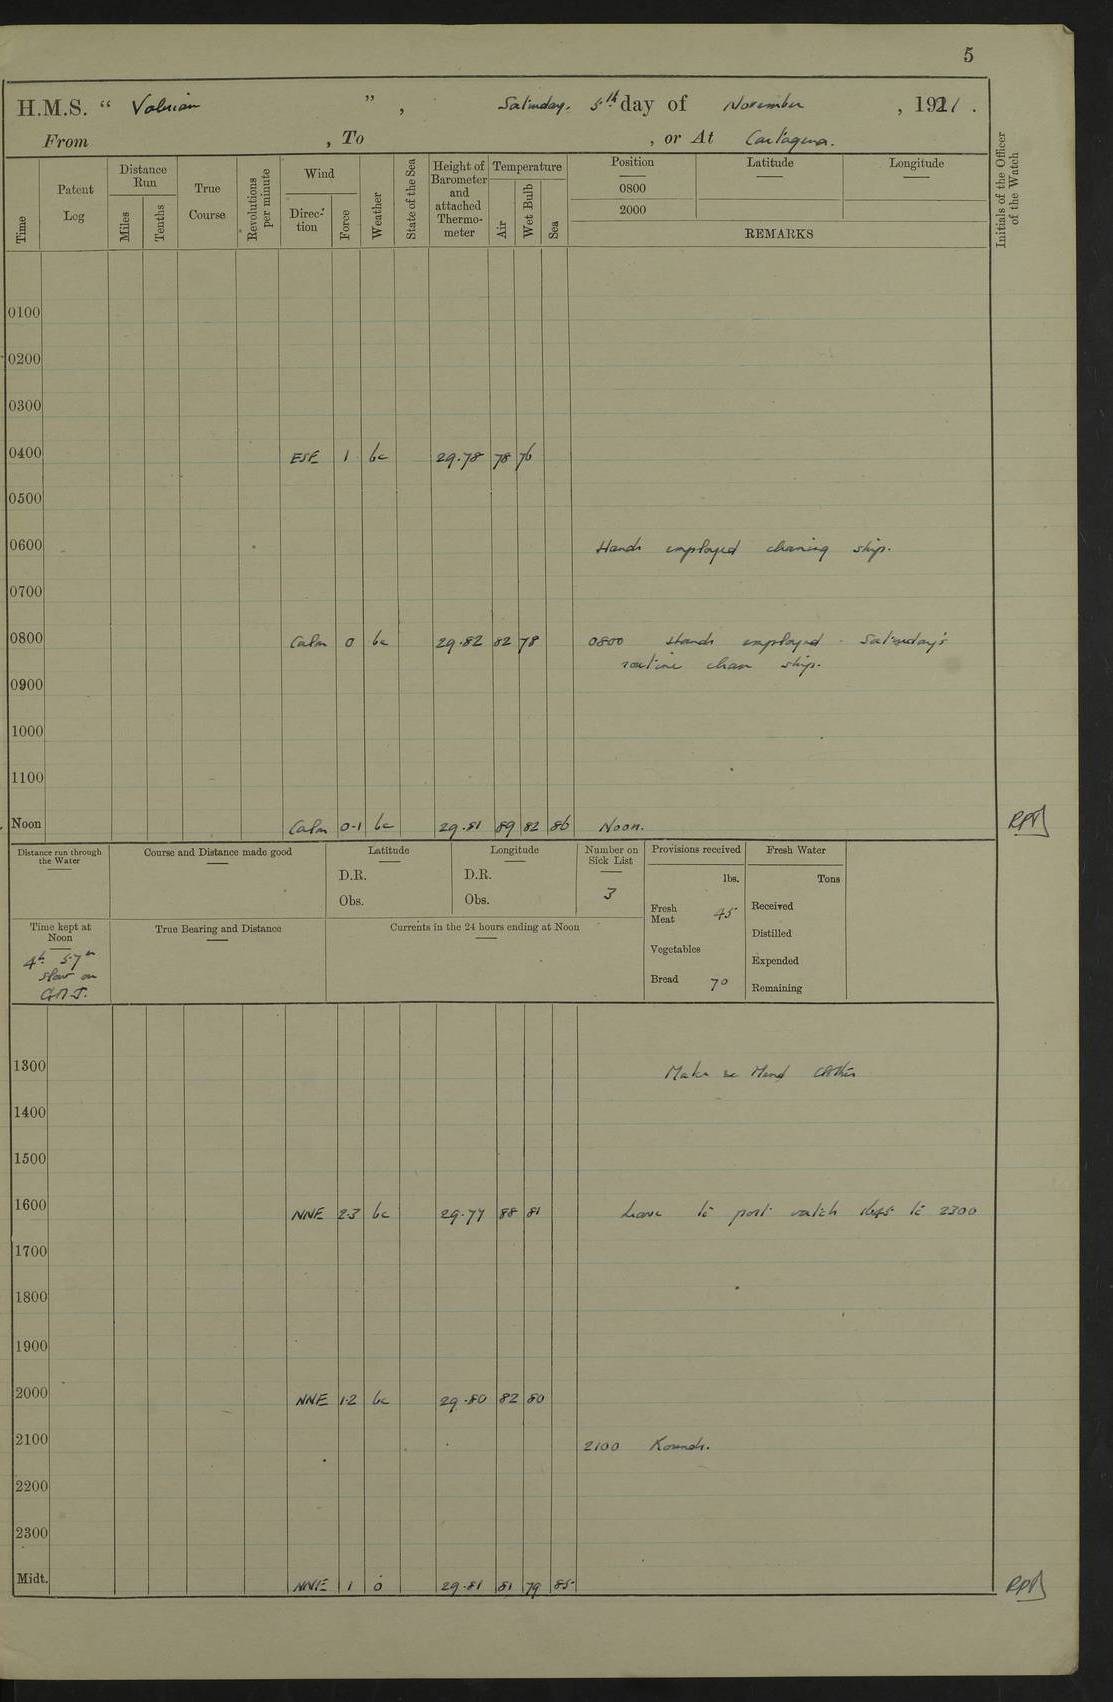 5
H.M.S. “ Valerian ” , Saturday. 5th day of November , 1921 .
From , To , or At Cartagena.
Time
Patent Log
Distance Run
Miles
Tenths
True Course
Revolutions per minute
Wind
Direction
Force
Weather
State of the Sea
Height of Barometer and attached Thermometer
Temperature
Air
Wet Bulb
Sea
Position
0800
2000
Latitude
Longitude
REMARKS
Initials of the Officer of the Watch
0100
0200
0300
0400 ESE 1 bc 29.78 78 76
0500
0600 Hands employed cleaning ship.
0700
0800 Calm 0 bc 29.82 82 78 0800 Hands employed Saturday's
routine clean ship.
0900
1000
1100
Noon Calm 0-1 bc 29.81 89 82 86 Noon.
Distance run through the Water
Course and Distance made good
Latitude
D.R.
Obs.
Longitude
D.R.
Obs.
Number on Sick List
3
Provisions received
lbs.
Fresh Meat 45
Vegetables
Bread 70
Fresh Water
Tons
Received
Distilled
Expended
Remaining
Time kept at Noon
4h 57m
slow on
G.M.T.
True Bearing and Distance
Currents in the 24 hours ending at Noon
1300 Make & Mend Clothes
1400
1500
1600 NNE 2-3 bc 29.77 88 81 Leave to port watch to 2300
1700
1800
1900
2000 NNE 1-2 bc 29.80 82 80
2100 2100 Rounds.
2200
2300
Midt. NNE 1 o 29.81 81 79 85